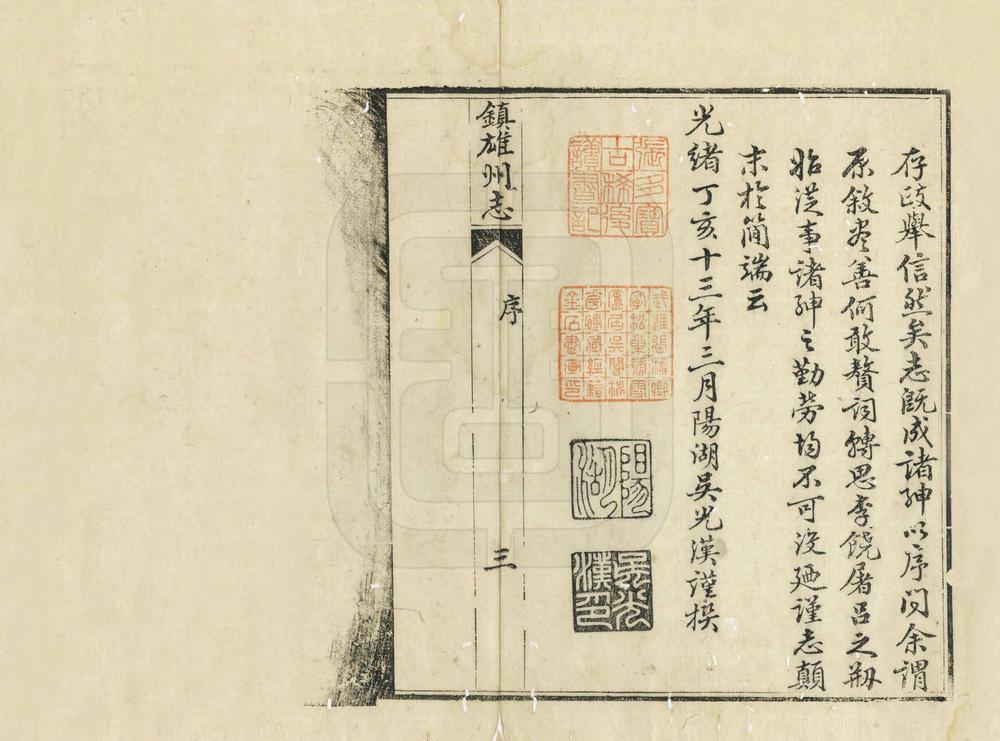 存改舉信然矣志旣成諸紳以序問余謂
原敘盡善何敢贅詞轉思李饒屠呂之剏
始從事諸紳之勤勞均不可沒廼謹志顛
末於簡端云
光緒丁亥十三年三月陽湖吳光漢謹撰
陽湖
吳光漢印
鎮雄州志
序
三